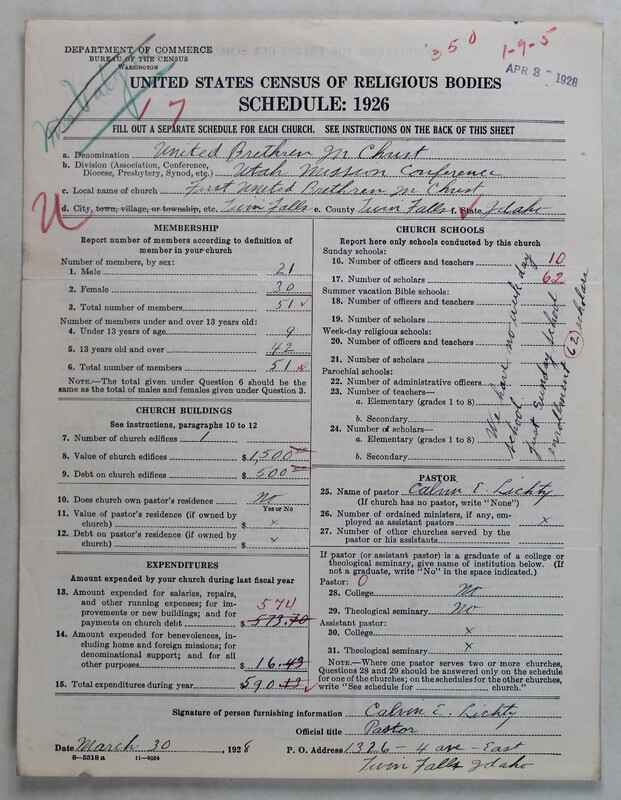 350 1-9-5
APR 3 - 1928
DEPARTMENT OF COMMERCE
BUREAU OF THE CENSUS
WASHINGTON
UNITED STATES CENSUS OF RELIGIOUS BODIES
SCHEDULE: 1926
17
FILL OUT A SEPARATE SCHEDULE FOR EACH CHURCH. SEE INSTRUCTIONS ON THE BACK OF THIS SHEET
a. Denomination United Brethren In Christ
b. Division (Association, Conference, Diocese, Presbytery, Synod, etc.) Utah Mission Conference
c. Local name of church First United Brethren In Christ
d. City, town, village, or township, etc. Twin Falls e. County Twin Falls f. State Idaho
MEMBERSHIP
Report number of members according to definition of
member in your church
Number of members, by sex:
1. Male 21
2. Female 30
3. Total number of members 51
Number of members under and over 13 years old:
4. Under 13 years of age 9
5. 13 years old and over 42
6. Total number of members 51
NOTE.—The total given under Question 6 should be the
same as the total of males and females given under Question 3.
CHURCH BUILDINGS
See instructions, paragraphs 10 to 12
7. Number of church edifices 1
8. Value of church edifices $1,500
9. Debt on church edifices $500
10. Does church own pastor's residence No
Yes or No
11. Value of pastor's residence (if owned by
church) $ x
12. Debt on pastor's residence (if owned by
church) $ x
EXPENDITURES
Amount expended by your church during last fiscal year
13. Amount expended for salaries, repairs,
and other running expenses; for im-
provements or new buildings; and for
payments on church debt $ 573.70 574
14. Amount expended for benevolences, in-
cluding home and foreign missions; for
denominational support; and for all
other purposes $16.43
15. Total expenditures during year $590.13
CHURCH SCHOOLS
Report here only schools conducted by this church
Sunday schools:
16. Number of officers and teachers 10
17. Number of scholars 62
Summer vacation Bible schools:
18. Number of officers and teachers
19. Number of scholars
Week-day religious schools:
20. Number of officers and teachers
21. Number of scholars
Parochial schools:
22. Number of administrative officers
23. Number of teachers—
a. Elementary (grades 1 to 8)
b. Secondary
24. Number of scholars—
a. Elementary (grades 1 to 8)
b. Secondary
We have no week day
school
just Sunday School
enrollment 62 scholars
PASTOR
25. Name of pastor Calvin E. Lichty
(If church has no pastor, write "None")
26. Number of ordained ministers, if any, em-
ployed as assistant pastors x
27. Number of other churches served by the
pastor or his assistants
If pastor (or assistant pastor) is a graduate of a college or
theological seminary, give name of institution below. (If
not a graduate, write "No" in the space indicated.)
Pastor: 0
28. College No
29. Theological seminary No
Assistant pastor:
30. College x
31. Theological seminary x
NOTE.—Where one pastor serves two or more churches,
Questions 28 and 29 should be answered only on the schedule
for one of the churches; on the schedules for the other churches,
write "See schedule for church."
Signature of person furnishing information Calvin E. Lichty
Official title Pastor
Date March 30, 1928 P. O. Address 1326 - 4 ave - East
8-5518 a 11-9024 Twin Falls Idaho